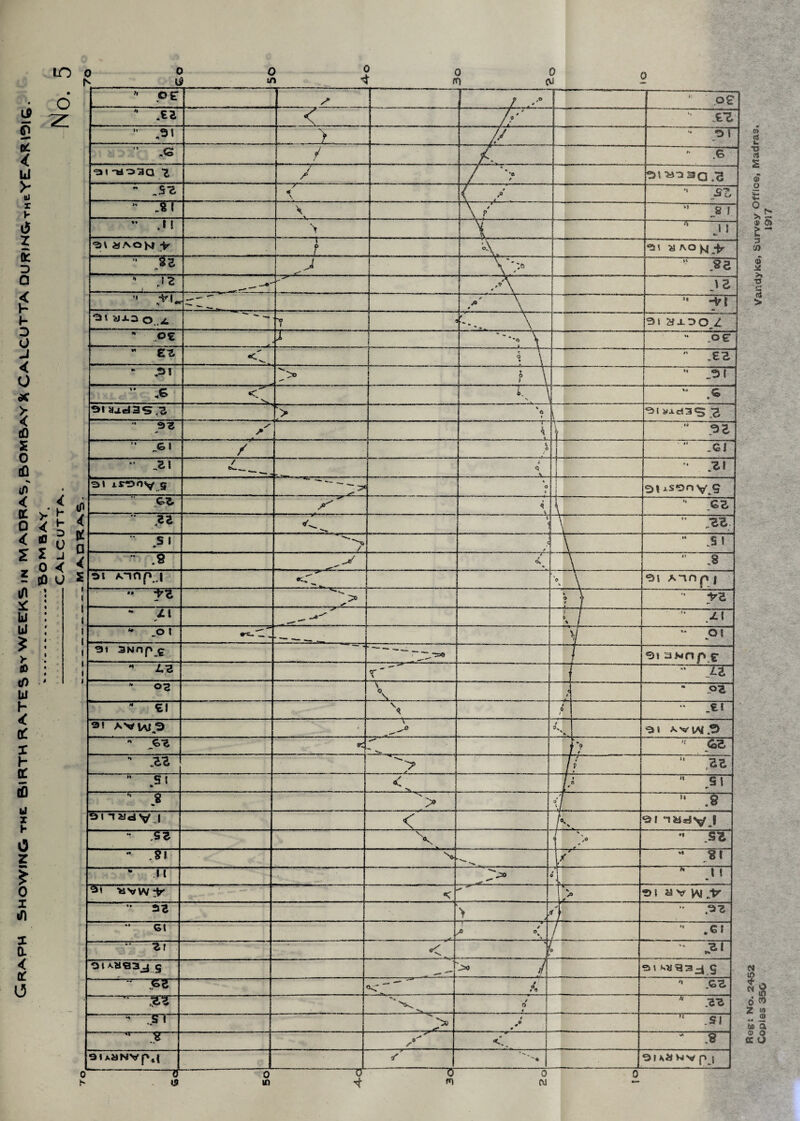 GRAPH SHOWING THE BIRTH RATES BY WEEKS IN MADRAS, BOMBAY & CALCUTTA DURING THE YEAR 1916.
No. 5
BOMBAY.
CALCUTTA.
MADRAS.
70 60 50 40 30 20 10
1.JANRY 16
8. "
15. "
22. "
29. "
5 FEBRY 16
12 "
19 "
26 "
4.MAR 16
11 "
18. "
25. "
1.APRIL 16
8. "
15. "
22. "
29. "
6.MAY 16
13 "
20 "
27 "
3.JUNE 16
10. "
17. "
24 "
1.JULY 16
8. "
15. "
22. "
29 "
5.AUGUST 16
12. "
19. "
26 "
2.SEPTR 16
9. "
16. "
23 "
30 "
7.OCTR 16
14. "
21. "
28. "
4.NOVR 16
11. "
18. "
25. "
2 DECR 16
9. "
16. "
23. "
30 "
1.JANRY 16
8. "
15. "
22. "
29. "
5.FEBRY 16
12. "
19. "
26. "
4.MAR 16
11. "
18. "
25. "
1.APRIL 16
8. "
15. "
22. "
29. "
6.MAY 16
13. "
20 "
27. "
3 JUNE 16
10. "
17. "
24. "
1 JULY 16
8. "
15. "
22. "
29 "
5.AUGUST 16
12. "
19. "
26. "
2.SEPTR 16
9. "
16. "
23. "
30 "
7.OCTR 16
14 "
21. "
28. "
4.NOVR 16
11. "
18. "
25. "
2.DECR 16
9. "
16. "
23. "
30. "
70 60 50 40 30 20 10
Reg: No. 2452
Copies 350
Vandyke, Survey Office, Madras.
1917